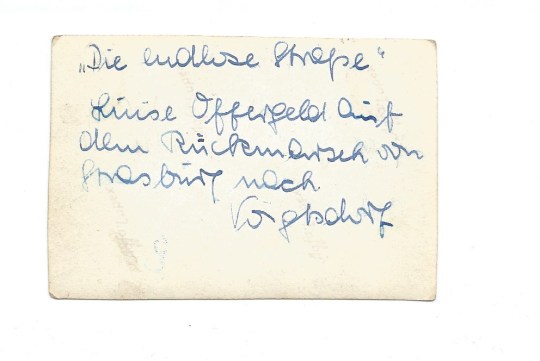 „Die endlose Straße"
Luise Offergeld auf
dem Rückmarsch von
Strasburg nach
Voigtsdorf